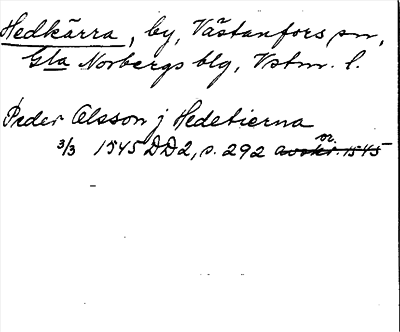 Hedkärra, by, Västanfors sn,
Gla Norbergs blg, Vstm. l.
Peder Olsson j Hedetierna
3/3 1545 DD2, s. 292 avskr. 1545
or.